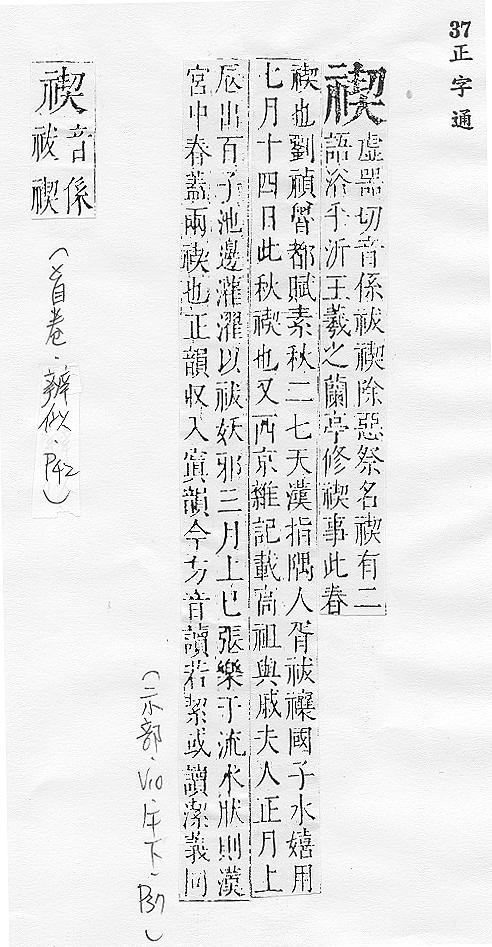 37正字通
禊
虛器切音係祓禊除惡祭名禊有二
語浴乎沂王羲之蘭亭修禊事此春
禊也劉禎魯都賦素秋二七天漢指隅人胥祓禳國子水嬉用
七月十四日此秋禊也又西京雜記載高祖與戚夫人正月上
辰出百子池邊灌濯以祓妖邪三月上巳張樂于流水狀則漢
宮中春蓋兩禊也正韻収入寘韻今方音讀若絜或讀潔義同
(示部.V10.午下.P37)
禊
音係
祓禊
(首卷.辨似.P42)